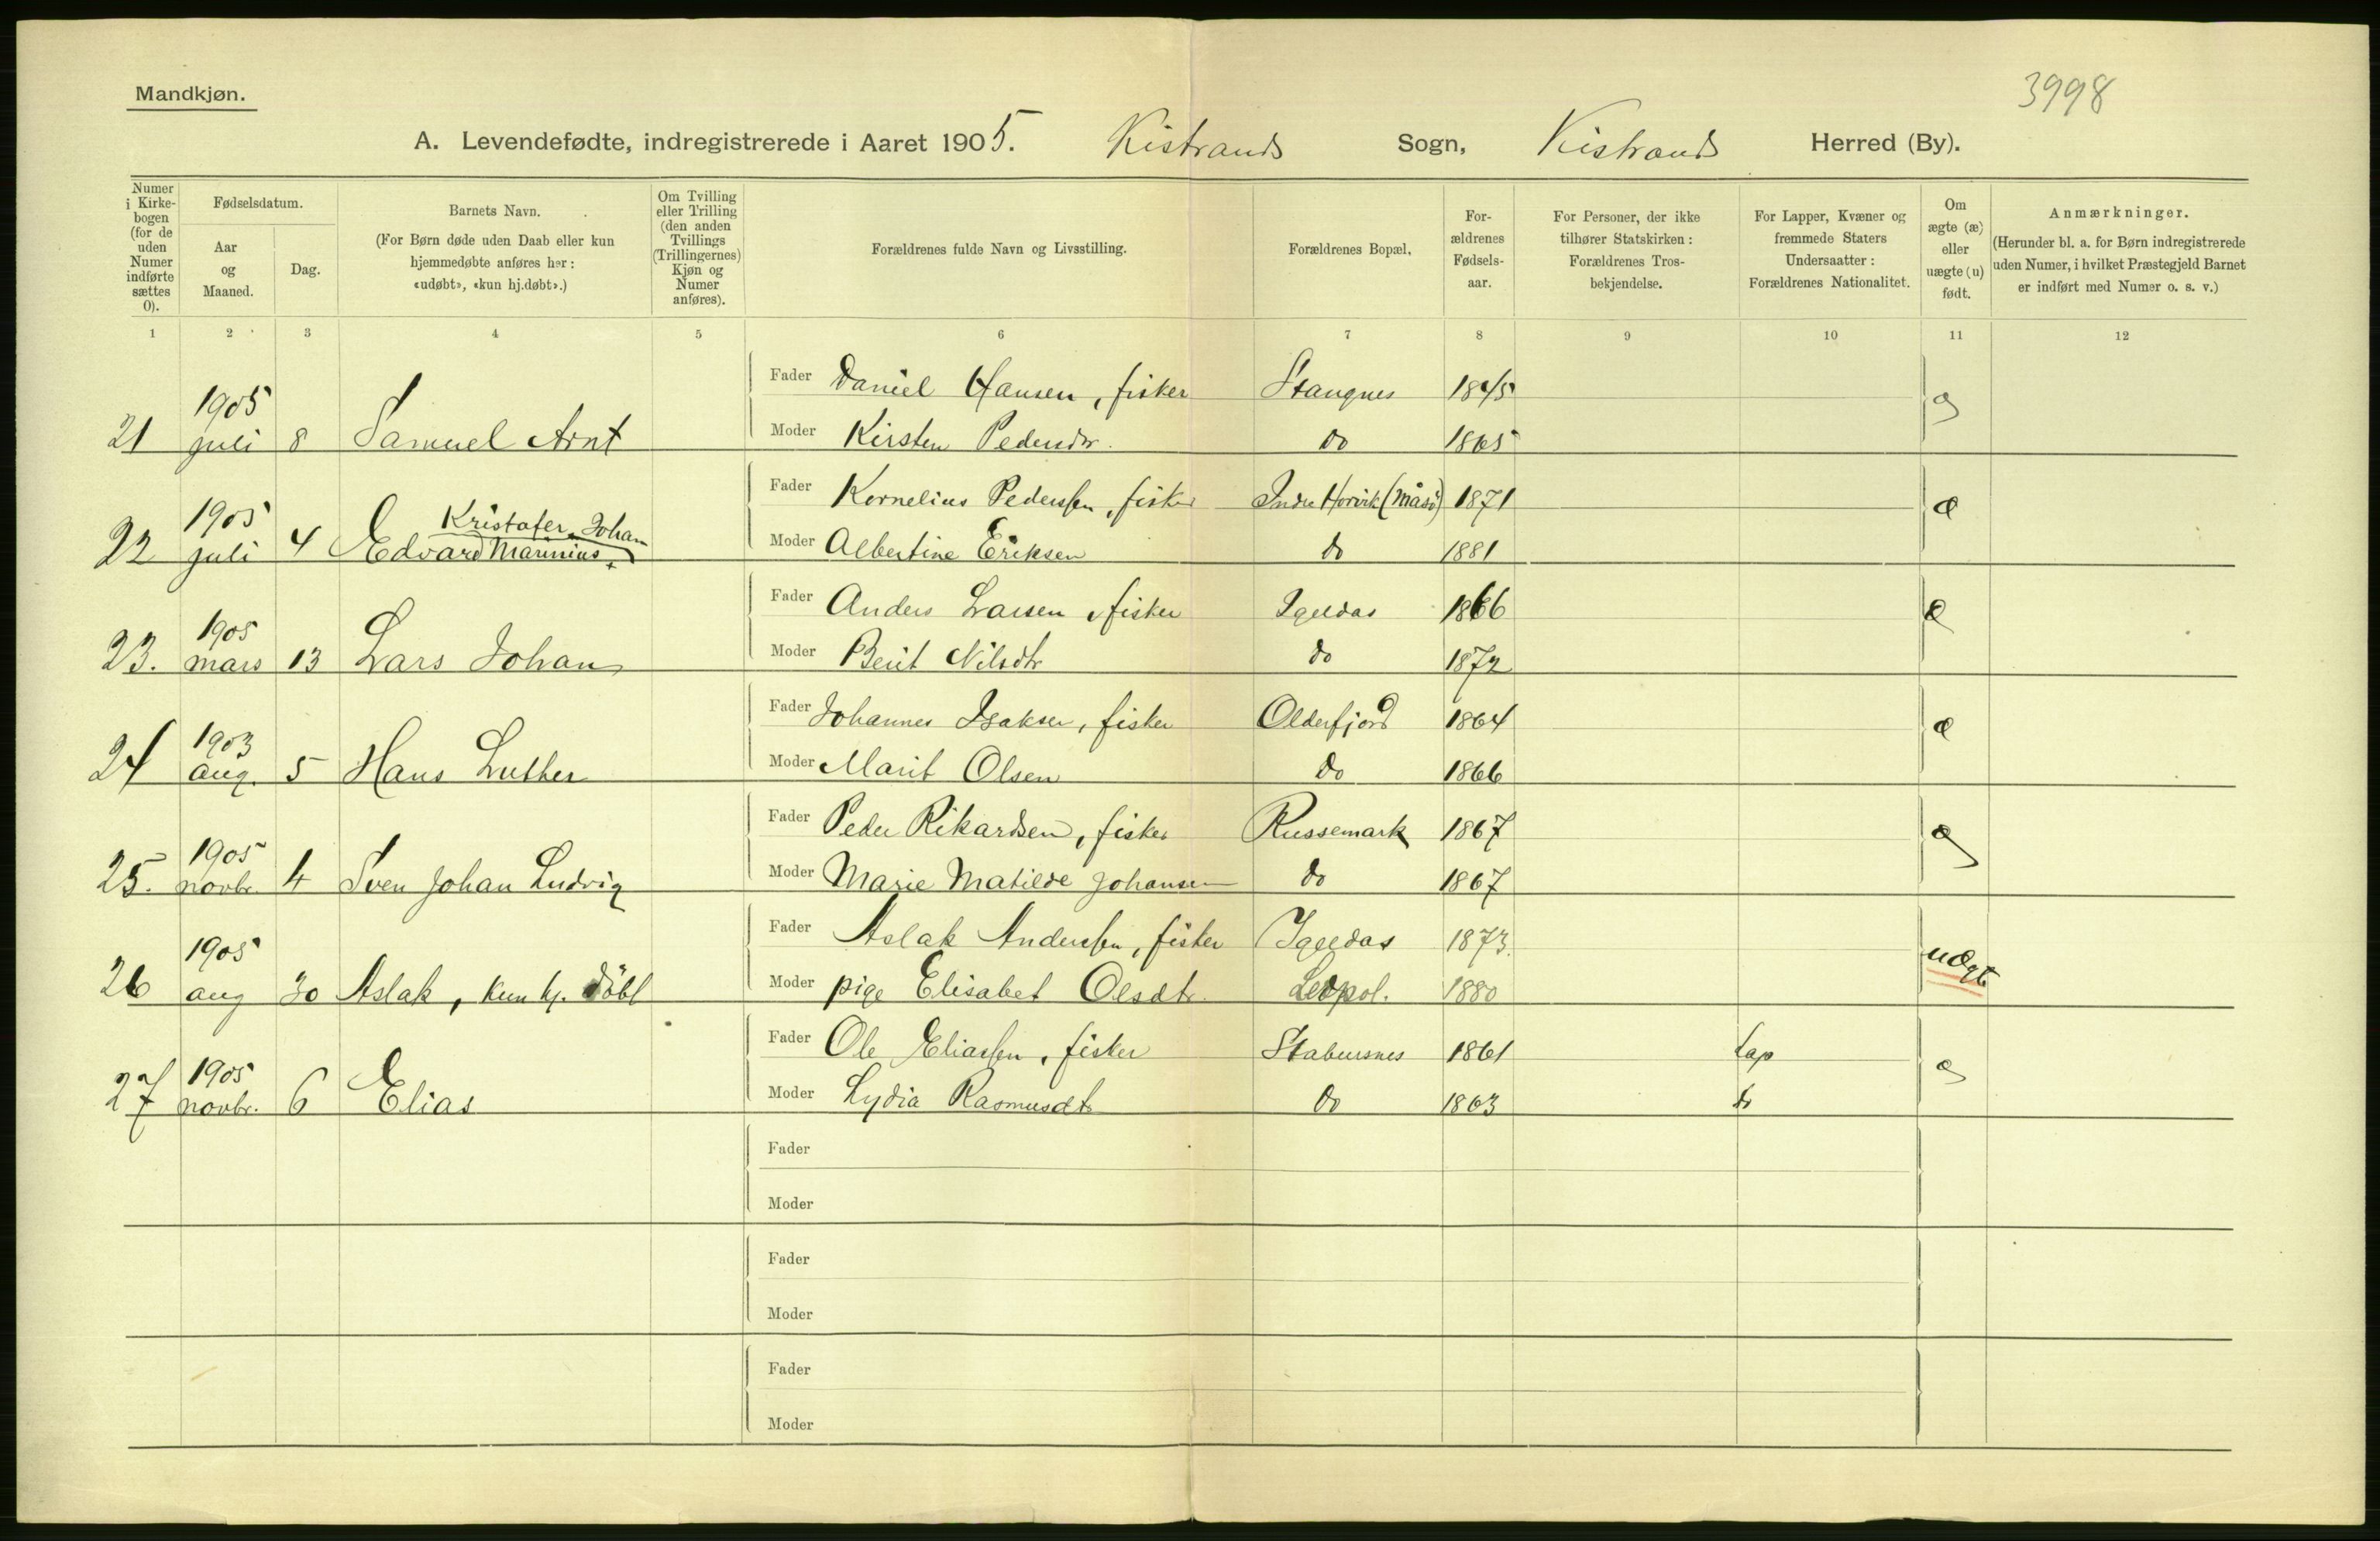 Mandkjøn.
3998
A. Levendefødte, indregistrerede i Aaret 1905. Kistrands Sogn, Kistrands Herred (By).
Numer i Kirkebogen (for de uden Numer indførte sættes 0).
Fødselsdatum.
Aar og Maaned.
Dag.
Barnets Navn.
(For Børn døde uden Daab eller kun hjemmedøbte anføres her: «udøbt», «kun hj.døbt».)
Om Tvilling eller Trilling (den anden Tvillings (Trillingernes) Kjøn og Numer anføres).
Forældrenes fulde Navn og Livsstilling.
Forældrenes Bopæl.
Forældrenes Fødselsaar.
For Personer, der ikke tilhører Statskirken: Forældrenes Trosbekjendelse.
For Lapper, Kvæner og fremmede Staters Undersaatter: Forældrenes Nationalitet.
Om ægte (æ) eller uægte (u) født.
Anmærkninger.
(Herunder bl. a. for Børn indregistrerede uden Numer, i hvilket Præstegjeld Barnet er indført med Numer o. s. v.)
1 2 3 4 5 6 7 8 9 10 11 12
Fader Daniel Hansen, fisker Stangnes 1845 æ
21 1905 juli 8 Samuel Arnt Moder Kirsten Pedersdr. do 1865
Fader Kornelius Pedersen, fisker Indre Horvik (Måsø) 1871 æ
22 1905 juli 4 Edvard Marinius Kristofer Johan Moder Albertine Eriksen do 1881
Fader Anders Larsen, fisker Igeldas 1866 æ
23. 1905 mars 13 Lars Johan Moder Berit Nilsdtr do 1872
Fader Johannes Isaksen, fisker Olderfjord 1864 æ
24 1903 aug. 5 Hans Luther Moder Marit Olsen do 1866
Fader Peder Rikardsen, fisker Russemark 1867 æ
25. 1905 novbr. 4 Sven Johan Ludvig Moder Marie Matilde Johansen do 1867
Fader Aslak Andersen, fisker Igeldas 1873. uægte
26 1905 aug 30 Aslak, kun hj. döbt Moder pige Elisabet Olsdtr. Leopol. 1880
Fader Ole Eliassen, fisker Stabursnes 1861 lap æ
27 1905 novbr. 6 Elias Moder Lydia Rasmusdtr do 1863 do
Fader
Moder
Fader
Moder
Fader
Moder